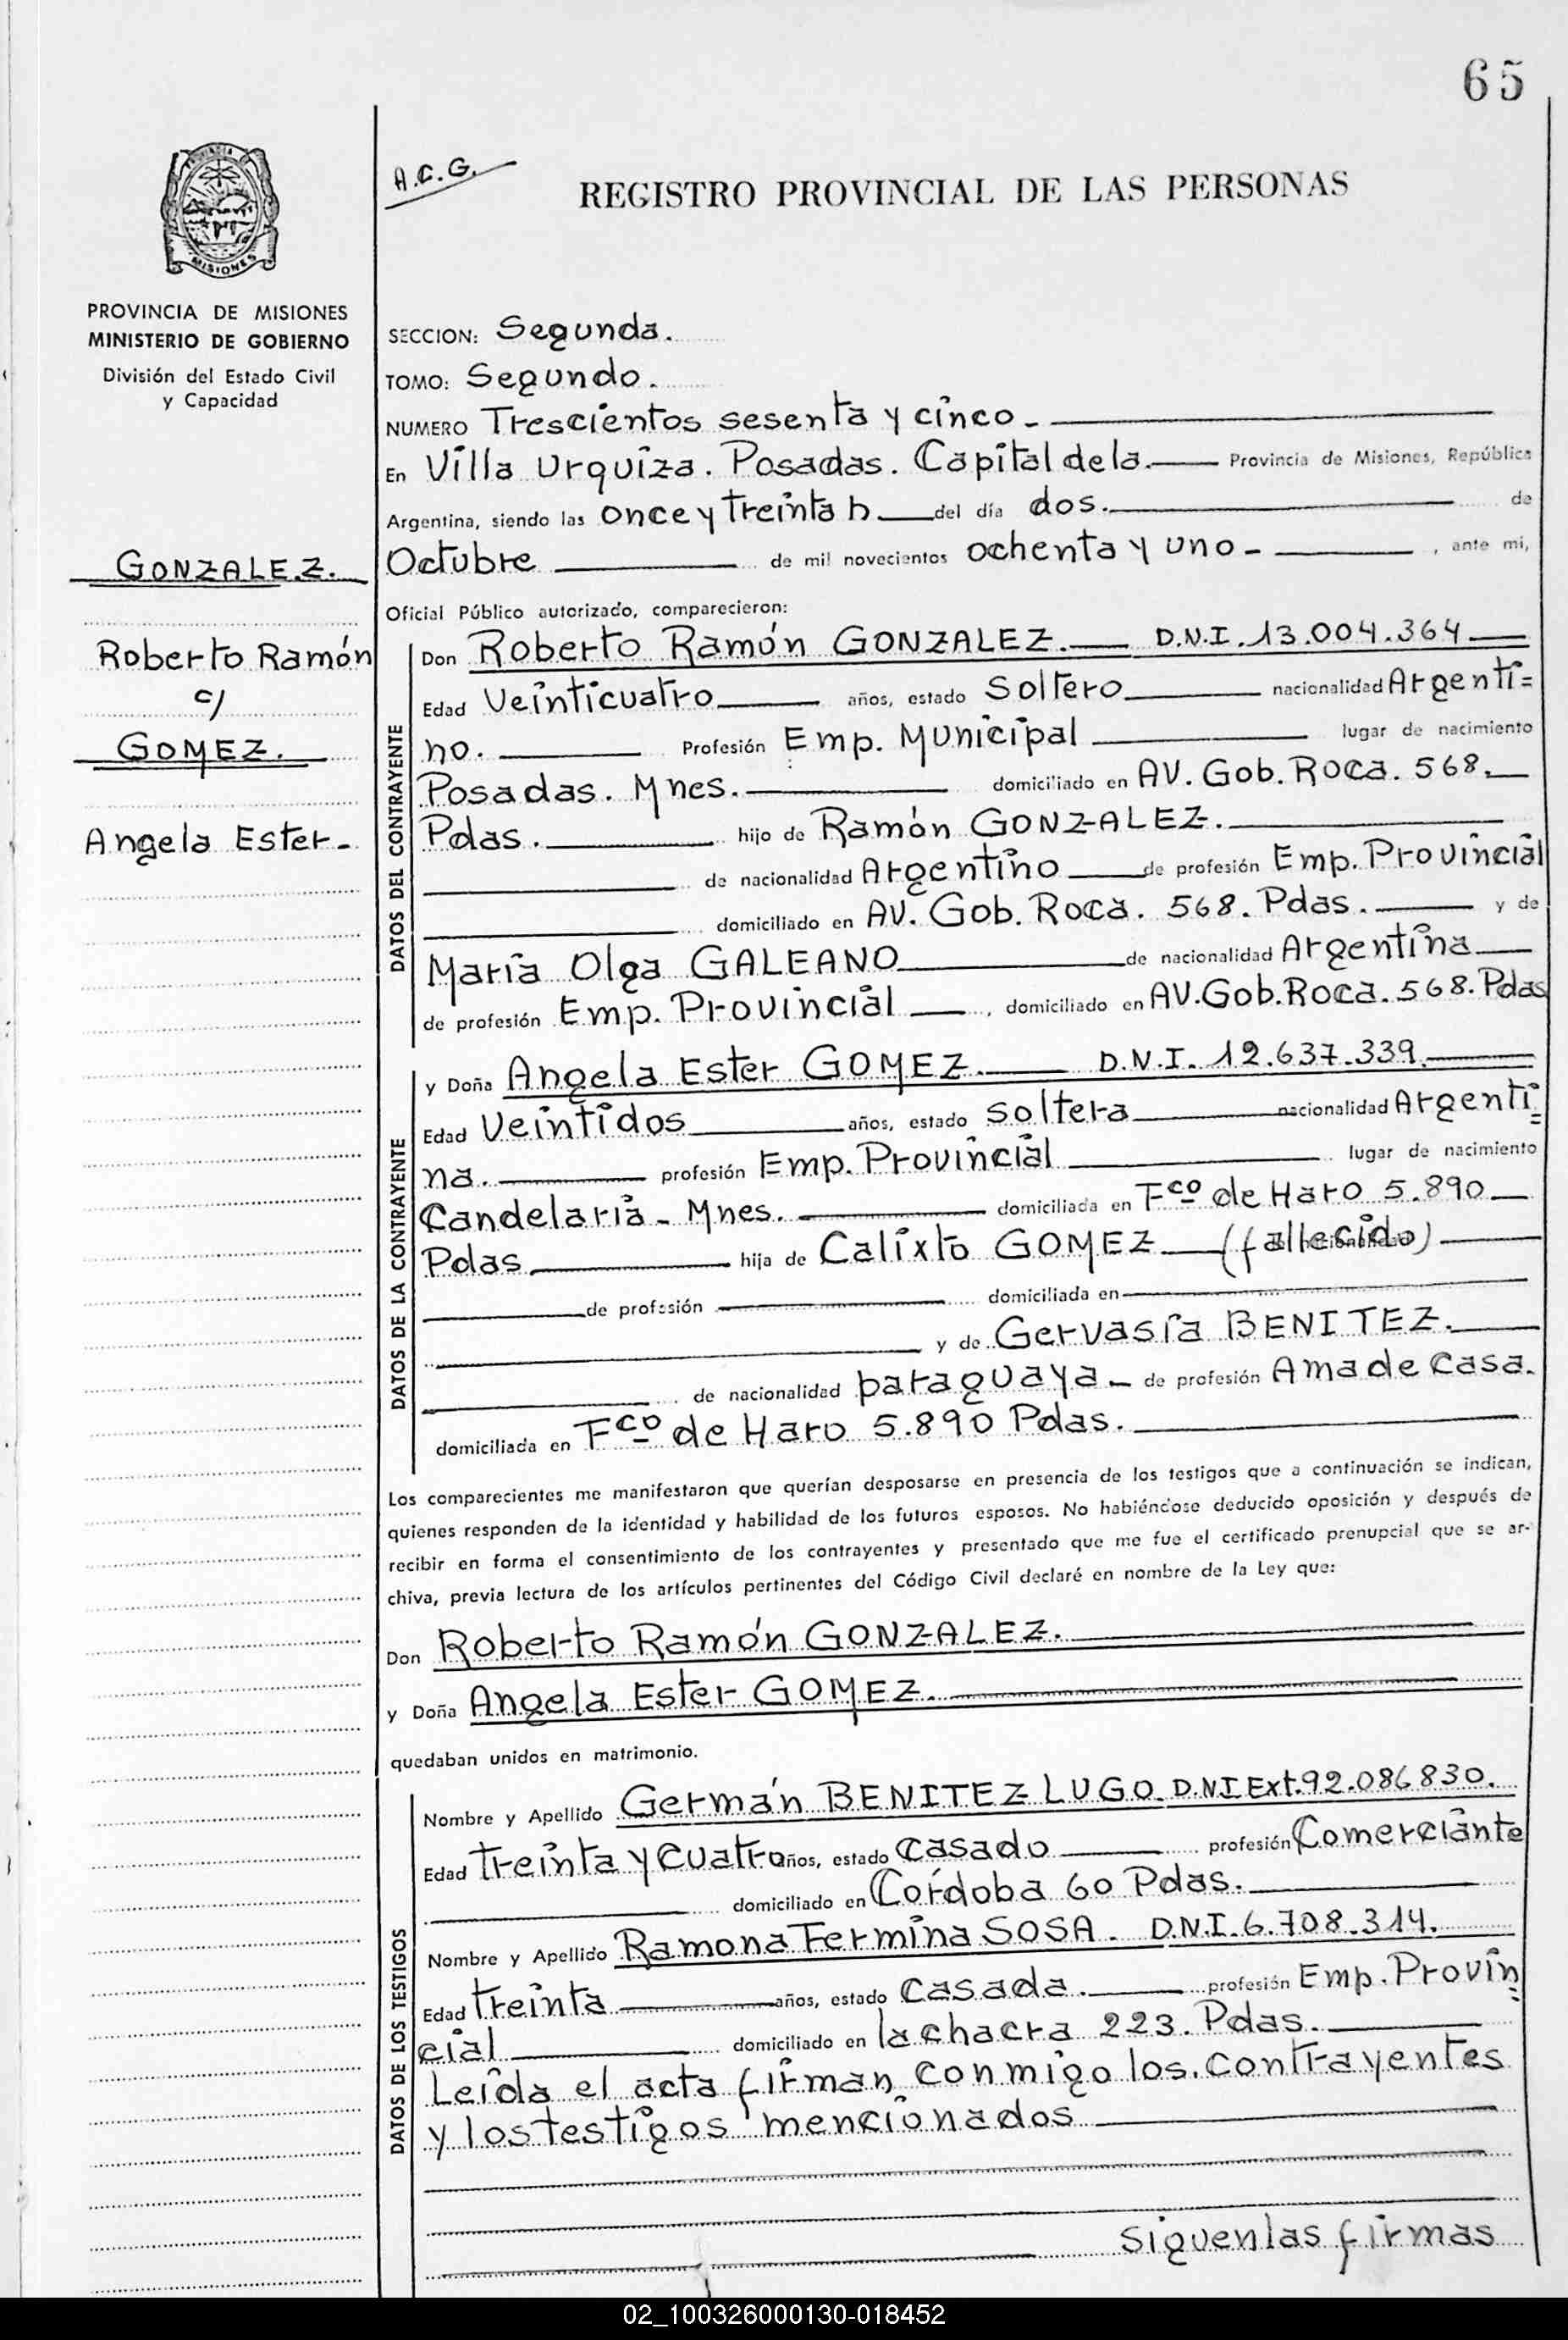 65
A.C.G.
REGISTRO PROVINCIAL DE LAS PERSONAS
PROVINCIA DE
MISIONES
PROVINCIA DE MISIONES
MINISTERIO DE GOBIERNO
División del Estado Civil
y Capacidad
GONZALEZ.
Roberto Ramón
c/
GOMEZ.
Angela Ester-
SECCION: Segunda.
TOMO: Segundo.
NUMERO Trescientos sesenta y cinco-
En Villa Urquiza. Posadas. Capital de la. Provincia de Misiones, República
Argentina, siendo las once y treinta h del día dos. de
Octubre de mil novecientos ochenta y uno- , ante mi,
Oficial Público autorizado, comparecieron:
DATOS DEL CONTRAYENTE
Don Roberto Ramón GONZALEZ. D.N.I. 13.004.364
Edad Veinticuatro años, estado Soltero nacionalidad Argenti=
no. Profesión Emp. Municipal lugar de nacimiento
Posadas. Mnes. domiciliado en AV. Gob. Roca. 568.
Pdas. hijo de Ramón GONZALEZ.
de nacionalidad Argentino de profesión Emp. Provincial
domiciliado en AV. Gob. Roca. 568. Pdas. y de
María Olga GALEANO de nacionalidad Argentina
de profesión Emp. Provincial , domiciliado en AV. Gob. Roca. 568. Pdas
DATOS DE LA CONTRAYENTE
y Doña Angela Ester GOMEZ. D.N.I. 12.637.339.
Edad Veintidos años, estado soltera nacionalidad Argenti=
na. profesión Emp. Provincial lugar de nacimiento
Candelaria - Mnes. domiciliada en Fco de Haro 5.890
Pdas hija de Calixto GOMEZ (fallecido)
de profesión domiciliada en
y de Gervasia BENITEZ.
de nacionalidad paraguaya- de profesión Ama de Casa.
domiciliada en Fco de Haro 5.890 Pdas.
Los comparecientes me manifestaron que querían desposarse en presencia de los testigos que a continuación se indican,
quienes responden de la identidad y habilidad de los futuros esposos. No habiéndose deducido oposición y después de
recibir en forma el consentimiento de los contrayentes y presentado que me fue el certificado prenupcial que se ar-
chiva, previa lectura de los artículos pertinentes del Código Civil declaré en nombre de la Ley que:
Don Roberto Ramón GONZALEZ.
y Doña Angela Ester GOMEZ.
quedaban unidos en matrimonio.
DATOS DE LOS TESTIGOS
Nombre y Apellido Germán BENITEZ LUGO. D.NI Ext. 92.086830.
Edad treinta y cuatro años, estado casado profesión Comerciante
domiciliado en Córdoba 60 Pdas.
Nombre y Apellido Ramona Fermina SOSA. D.N.I. 6.708.314.
Edad treinta años, estado casada. profesión Emp. Provin=
cial domiciliado en la chacra 223. Pdas.
Leída el acta firman conmigo los contrayentes
y los testigos mencionados
siguen las firmas
02_100326000130-018452